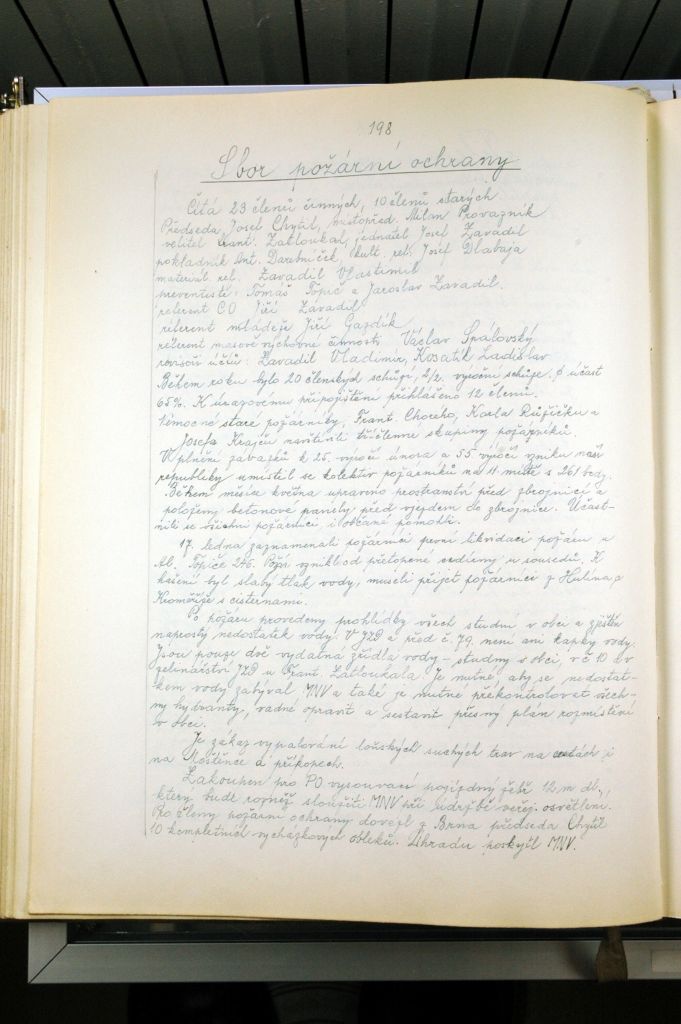 198
Sbor požární ochrany
Čítá 23 členů činných, 10 členů starých
Předseda Josef Chytil, místopřed. Milan Provazník
velitel Frant. Zatloukal, jednatel Josef Zavadil
pokladník Ant. Darebníček, kult. ref. Josef Dlabaja
materiál. ref. Zavadil Vlastimil
preventisté: Tomáš Topič a Jaroslav Zavadil.
referent CO Jiří Zavadil
referent mládeže Jiří Gazdík
referent masově výchovné činnosti Václav Spálovský
revisoři účtů: Zavadil Vladimír, Kosatík Ladislav
Během roku bylo 20 členských schůzí, 1/2. výroční schůze. ø účast
65%. K úrazovému připojištění přihlášeno 12 členů.
Nemocné staré požárníky, Frant. Chorého, Karla Růžičku a
Josefa Krajčí navštívili tříčlenné skupiny požárníků.
V plnění závazků k 25. výročí února a 55. výročí vzniku naší
republiky umístil se kolektiv požárníků na 11. místě s 261 body.
Během měsíce května upraveno prostranství před zbrojnicí a
položeny betonové panely před vjezdem do zbrojnice. Účast-
nili se všichni požárníci i občané pomohli.
17. ledna zaznamenali požárníci první likvidaci požáru u
Al. Topiče 246. Požár vznikl od přetopené udírny u sousedů. K
hašení byl slabý tlak vody, museli přijet požárníci z Hulína a
Kroměříže s cisternami.
Po požáru provedeny prohlídky všech studní v obci a zjištěn
naprostý nedostatek vody. V JZD a před č. 79. není ani kapky vody.
Jsou pouze dvě vydatná zřídla vody - studny v obci, v č 10 a v
zelinářství JZD u Frant. Zatloukala. Je nutné, aby se nedostat-
kem vody zabýval MNV a také je nutné překontrolovat všech-
ny hydranty, vadné opravit a sestavit přesný plán rozmístění
v obci.
Je zákaz vypalování loňských suchých trav na cestách i
na Moštěnce a příkopech.
Zakoupen pro PO vysouvací pojízdný žebř 12 m dl.,
který bude rovněž sloužiti MNV při údržbě veřej. osvětlení.
Pro členy požární ochrany dovezl z Brna předseda Chytil
10 kompletních vycházkových obleků. Úhradu poskytl MNV.